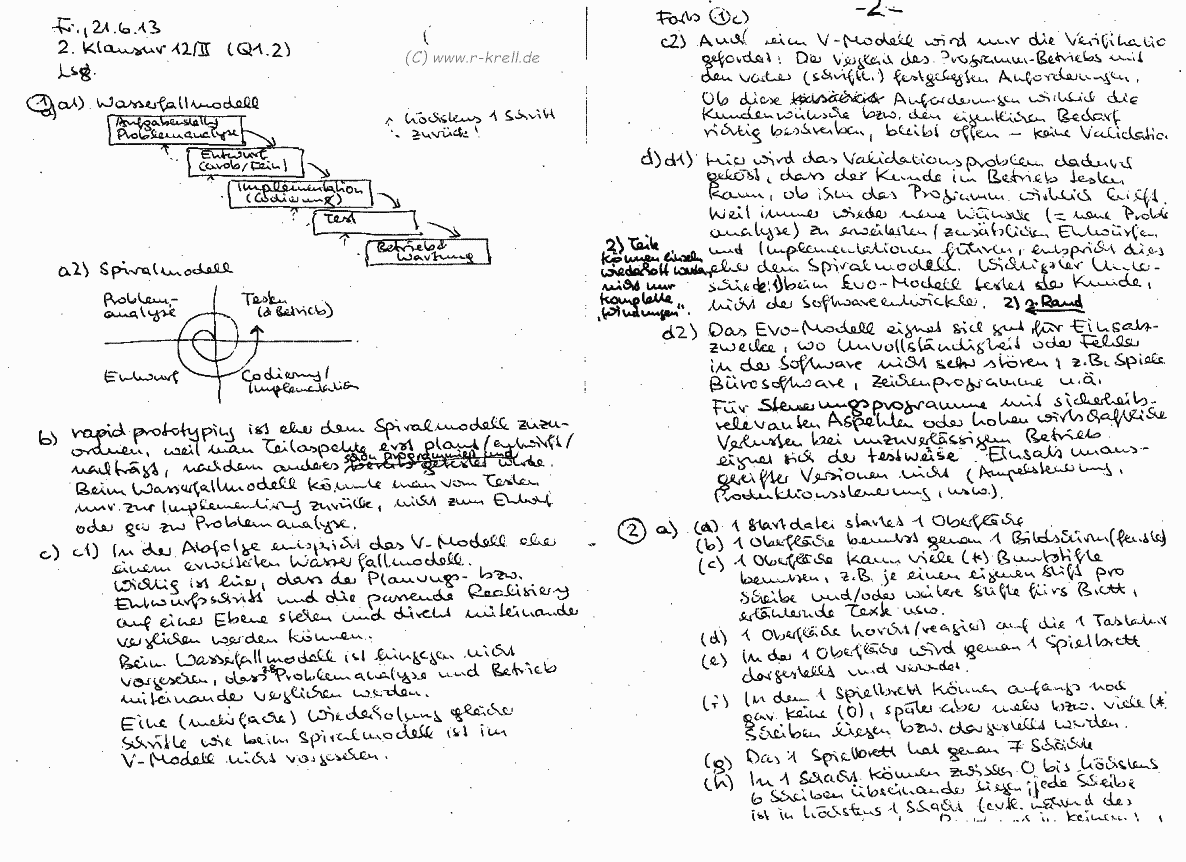 Fr., 21.6.13
2. Klausur 12/II (Q1.2)
Lsg.
(C) www.r-krell.de
① a1) Wasserfallmodell
a)
Aufgabenstellg
Problemanalyse
Entwurf
(Grob/Fein)
Implementation
(Codierung)
Test
Betrieb &
Wartung
höchstens 1 Schritt
zurück!
a2) Spiralmodell
Problem-
analyse
Testen
(& Betrieb)
Entwurf
Codierung/
Implementation
b) rapid prototyping ist eher dem Spiralmodell zuzu-
ordnen, weil man Teilaspekte erst plant/entwirft/
nachträgt, nachdem anderes schon programmiert und
getestet wurde.
Beim Wasserfallmodell könnte man vom Testen
nur zur Implementierg zurück, nicht zum Entwurf
oder gar zur Problemanalyse.
c) c1) In der Abfolge entspricht das V-Modell eher
einem erweiterten Wasserfallmodell.
Wichtig ist hier, dass der Planungs- bzw.
Entwurfsschritt und die passende Realisierg
auf einer Ebene stehen und direkt miteinander
verglichen werden können.
Beim Wasserfallmodell ist hingegen nicht
vorgesehen, dass z.B. Problemanalyse und Betrieb
miteinander verglichen werden.
Eine (mehrfache) Wiederholung gleicher
Schritte wie beim Spiralmodell ist im
V-Modell nicht vorgesehen.
-2-
Forts ① c)
c2) Auch beim V-Modell wird nur die Verifikatio
gefordert: Der Vergleich des Programm-Betriebs mit
den vorher (schriftl.) festgelegten Anforderungen.
Ob diese Anforderungen wirklich die
Kundenwünsche bzw. den eigentlichen Bedarf
richtig beschreiben, bleibt offen – keine Validatio
d) d1) Hier wird das Validationsproblem dadurch
gelöst, dass der Kunde im Betrieb testen
kann, ob ihm das Programm wirklich hilft.
Weil immer wieder neue Wünsche (= neue Proble
analyse) zu erweiterten/zusätzlichen Entwürfen
und Implementationen führen, entspricht dies
eher dem Spiralmodell. Wichtigster Unter-
schied: 1) beim Evo-Modell testet der Kunde,
nicht der Softwareentwickler. 2) s. Rand
2) Teile
können einzeln
wiederholt werden,
nicht nur
komplette
„Windungen".
d2) Das Evo-Modell eignet sich gut für Einsatz-
zwecke, wo Unvollständigkeit oder Fehler
in der Software nicht sehr stören, z.B. Spiele
Bürosoftware, Zeichenprogramme u.ä.
Für Steuerungsprogramme mit sicherheits-
relevanten Aspekten oder hohen wirtschaftliche
Verlusten bei unzuverlässigem Betrieb
eignet sich der testweise Einsatz unaus-
gereifter Versionen nicht (Ampelsteuerung,
Produktionssteuerung, usw.).
② a) (a) 1 Startdatei startet 1 Oberfläche
(b) 1 Oberfläche benutzt genau 1 Bildschirm(fenster)
(c) 1 Oberfläche kann viele (*) Buntstifte
benutzen, z.B. je einen eigenen Stift pro
Scheibe und/oder weitere Stifte fürs Brett,
erläuternde Texte usw.
(d) 1 Oberfläche horcht/reagiert auf die 1 Tastatur
(e) In der 1 Oberfläche wird genau 1 Spielbrett
dargestellt und verwendet.
(f) In dem 1 Spielbrett können anfangs noch
gar keine (0), später aber mehr bzw. viele (*
Scheiben liegen bzw. dargestellt werden.
(g) Das 1 Spielbrett hat genau 7 Schächte
(h) In 1 Schacht können zwischen 0 bis höchstens
6 Scheiben übereinander liegen; jede Scheibe
ist in höchstens 1 Schacht (evtl. während des